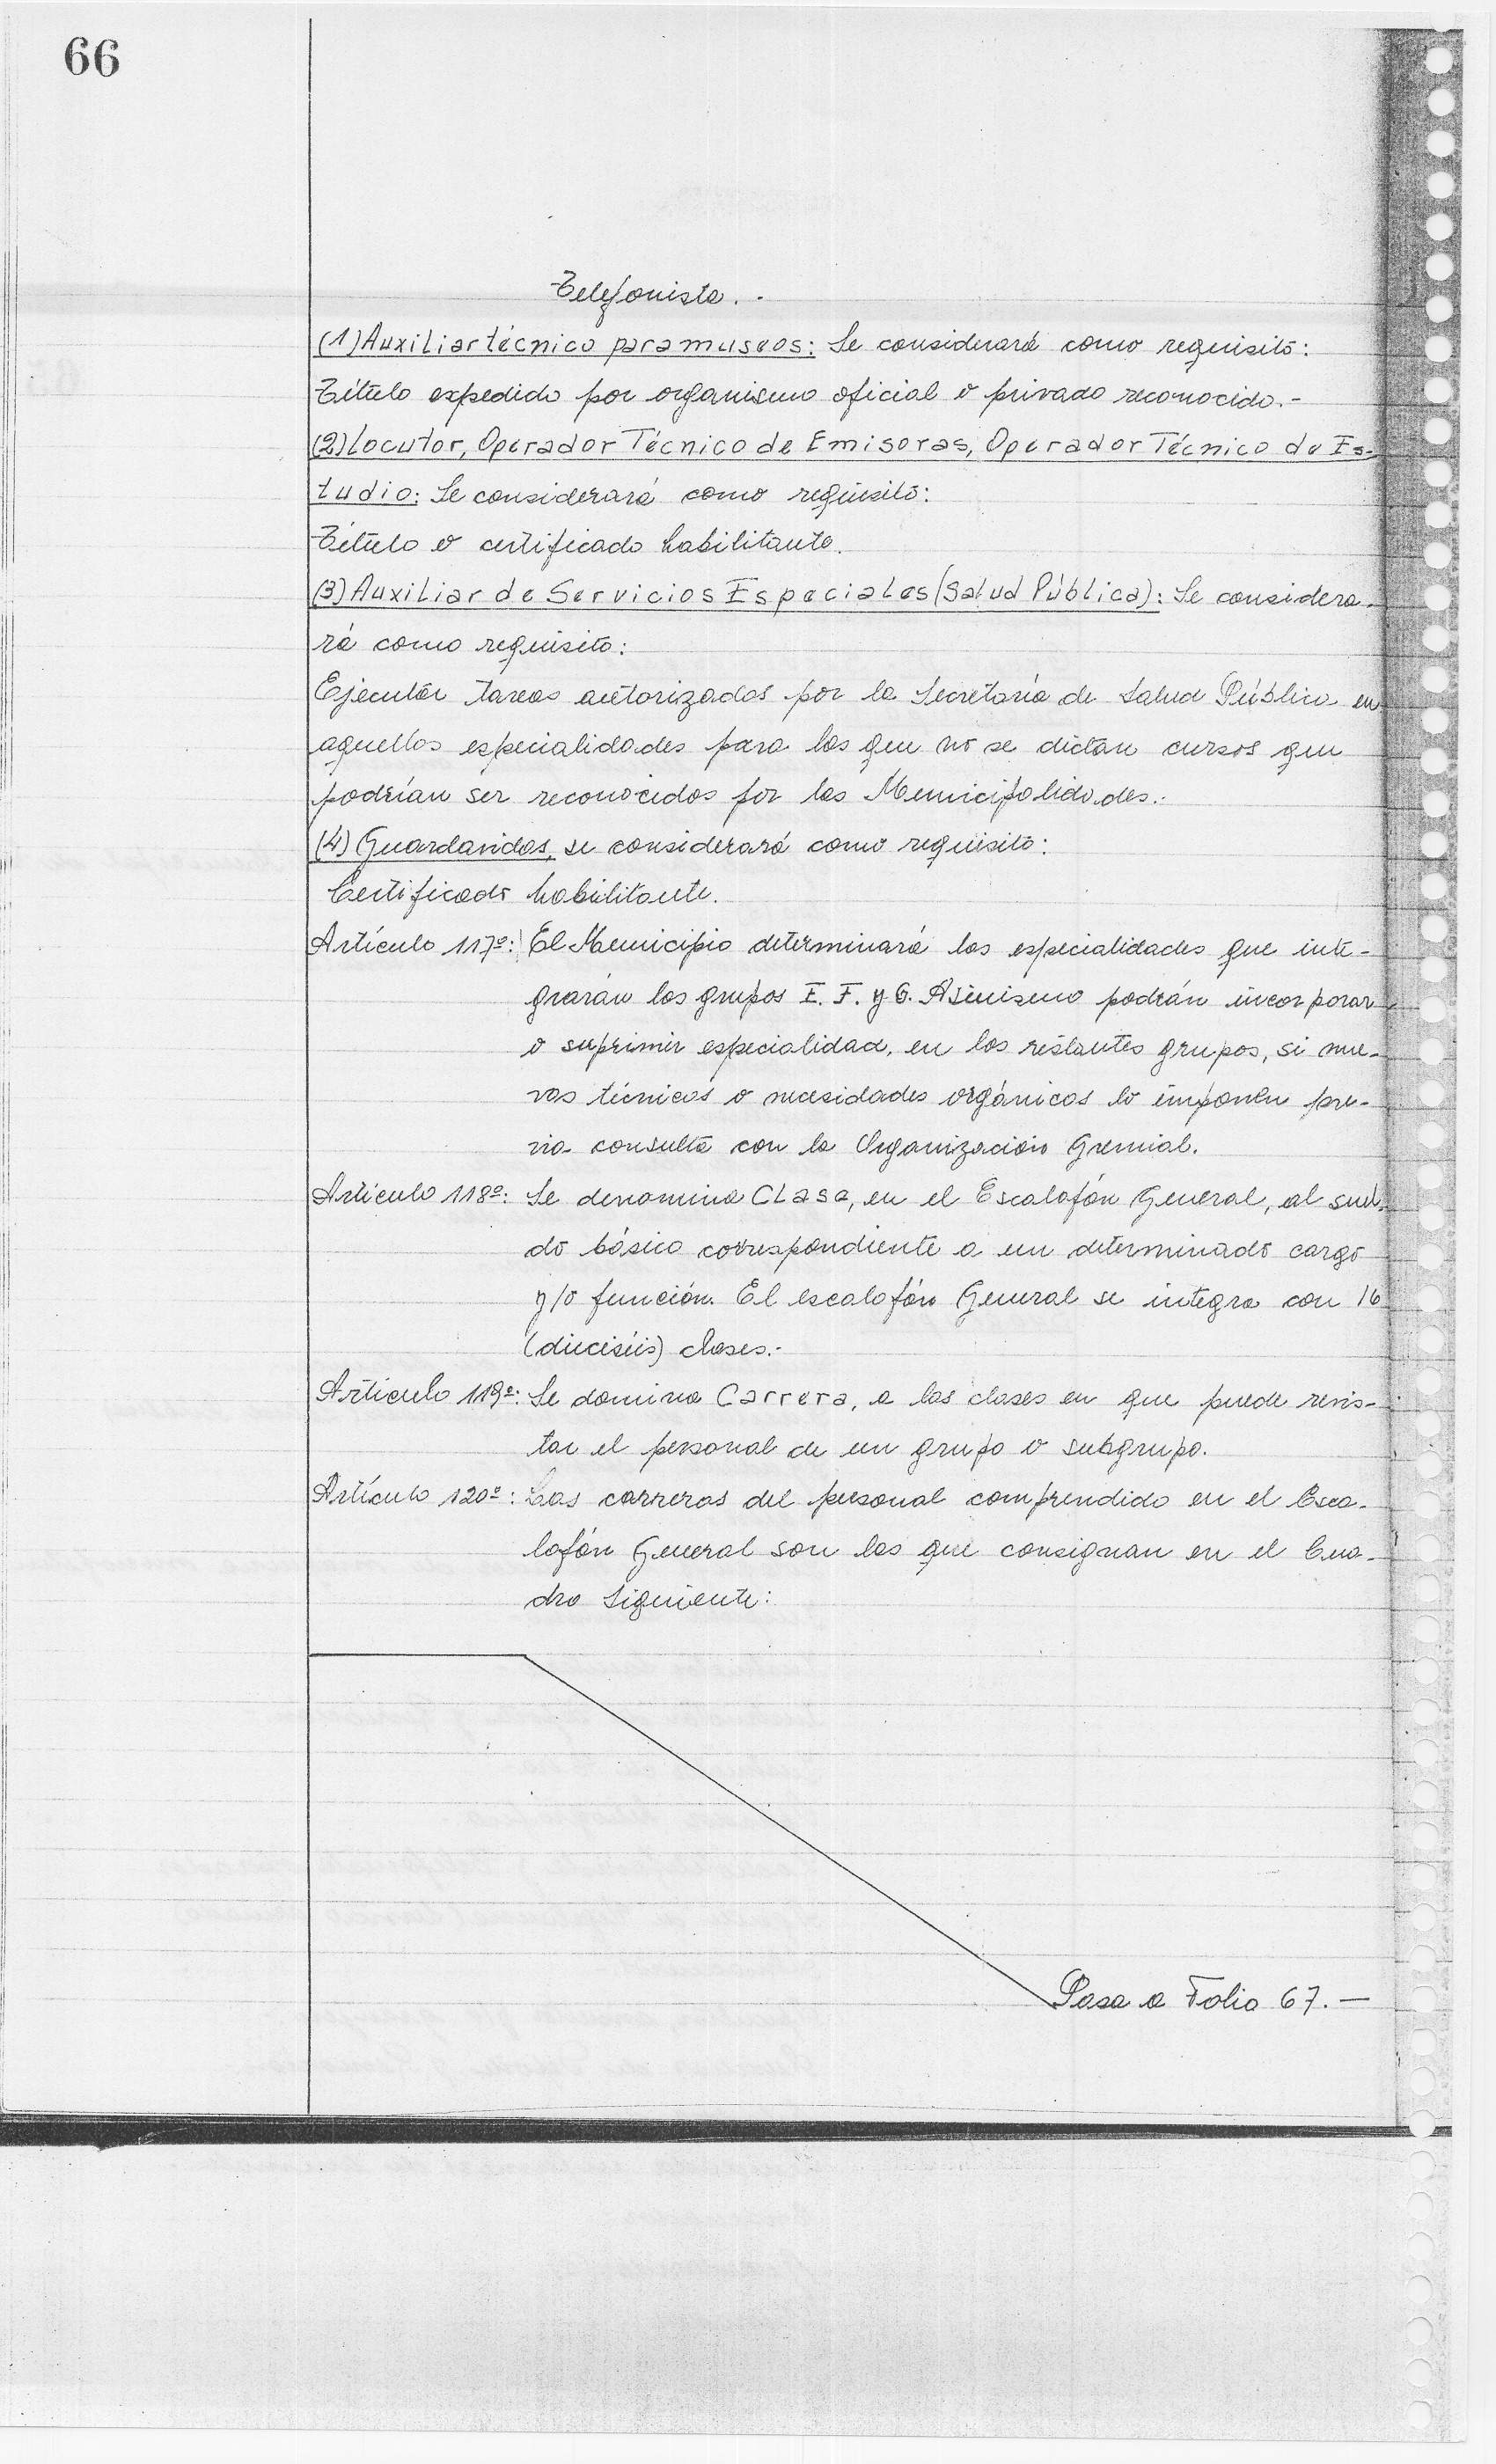 66
Telefonista.-
(1) Auxiliar técnico para museos: Se considerará como requisito:
Título expedido por organismo oficial o privado reconocido.-
(2) Locutor, Operador Técnico de Emisoras, Operador Técnico de Es-
tudio: Se considerará como requisito:
Título o certificado habilitante.
(3) Auxiliar de Servicios Especiales (Salud Pública): Se considera-
rá como requisito:
Ejecutar tareas autorizadas por la Secretaría de Salud Pública en
aquellas especialidades para las que no se dictan cursos que
podrían ser reconocidos por las Municipalidades.-
(4) Guardavidas, se considerará como requisito:
Certificado habilitante.
Artículo 117º: El Municipio determinará las especialidades que inte-
grarán los grupos E. F. y G. Asimismo podrán incorporar
o suprimir especialidad, en los restantes grupos, si nue-
vas técnicas o necesidades orgánicas lo imponen pre-
via consulta con la Organización Gremial.
Artículo 118º: Se denomina Clase, en el Escalafón General, al suel-
do básico correspondiente a un determinado cargo
y/o función. El escalafón General se integra con 16
(dieciséis) clases.-
Artículo 119º: Se domina Carrera, a las clases en que puede revis-
tar el personal de un grupo o subgrupo.
Artículo 120º: Las carreras del personal comprendido en el Esca-
lafón General son las que consignan en el Cua-
dro Siguiente:
Pasa a Folio 67.—